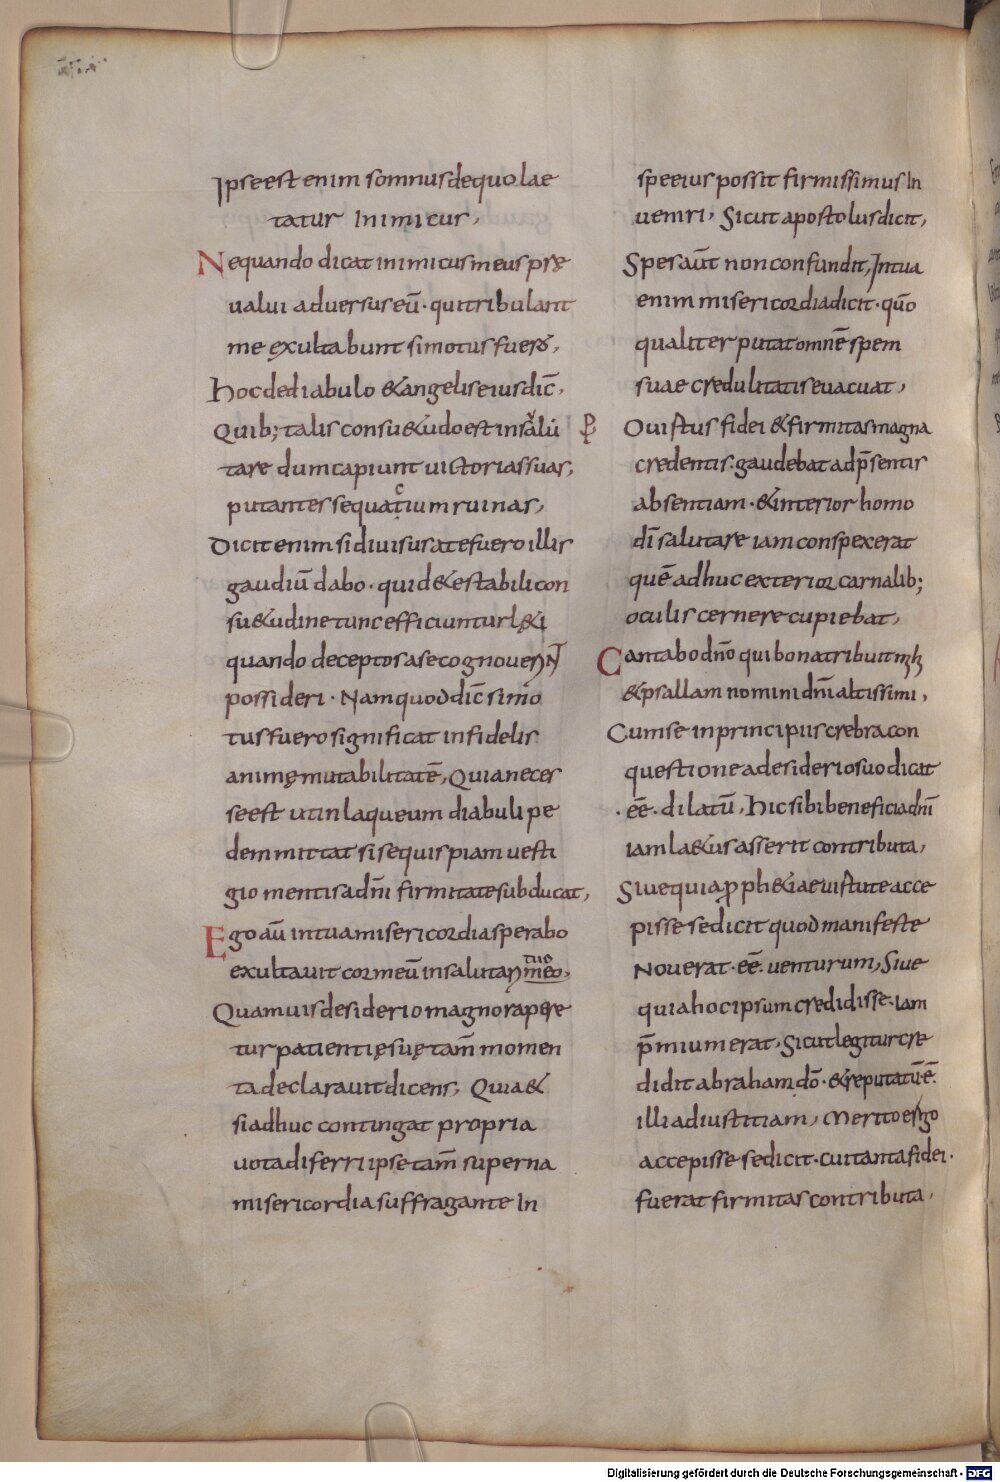 Ipse est enim somnus de quo lae
tatur Inimicus,
Nequando dicat inimicus meus prę
ualui aduersus eū· qui tribulant
me exultabunt si motus fuerō,
hoc de diabulo & angelis eius dīc,
Quib; talis consu&udo est insalu
tare dum capiunt uictorias suas,
putantes sequatium ruinas,
Dicit enim si diuisus a te fuero illis
gaudiū dabo· quid & estabili con
su&udine tunc efficiuntur l&i
quando deceptos a se cognouerNT
possideri· Nam quod dīc si mo
tus fuero significat infidelis
animę mutabilitatē, Quia neces
se est ut in laqueum diabuli pe
dem mittat si se quispiam uesti
gio mentis a dn̄i firmitate subducat,
Ego aū in tua misericordia sperabo
exultauit cor meū in salutari tuo meo,
Quamuis desiderio magno rapere
tur patientię suę tam̄ momen
ta declarauit dicens, Quia &
si adhuc contingat propria
uota diferri ipse tam̄ superna
misericordia suffragante In
spe eius possit firmissimus In
ueniri, Sicut apostolus dicit,
Spes aūt non confundit, In tua
enim misericordia dicit· quō
qualiter putat omnē spem
suae credulitatis euacuat,
O uirtus fidei & firmitas magna
credentis· gaudebat ad p̄sentis
absentiam· & interior homo
dī salutare iam conspexerat
quē adhuc exterior carnalib;
oculis cernere cupiebat,
Cantabo dn̄o qui bona tribuit mihi
& psallam nomini dn̄i altissimi,
Cum se in principiis crebra con
questione a desiderio suo dicat
·eē· dilatū, hic sibi beneficia dn̄i
iam l&us asserit contributa,
Siue quia pph&iae uirtute acce
pisse se dicit quod manifeste
Nouerat· eē· uenturum, Siue
quia hoc ipsum credidisse· iam
p̄mium erat, Sicut legitur cre
didit abraham dō· & reputatū· ē·
illi ad iustitiam, Merito ergo
accepisse se dicit· cui tanta fidei·
fuerat firmitas contributa,
Digitalisierung gefördert durch die Deutsche Forschungsgemeinschaft - DFG